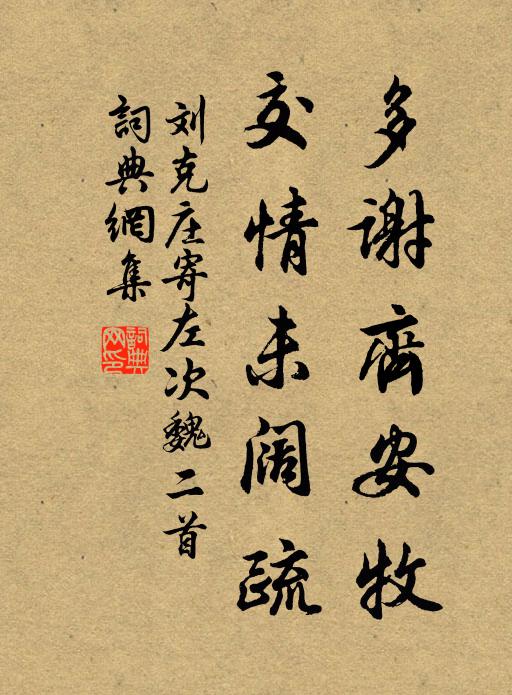 多谢齊安牧
交情未阔疏
刘克庄寄左次魏二首
詞典網集
詞典网印